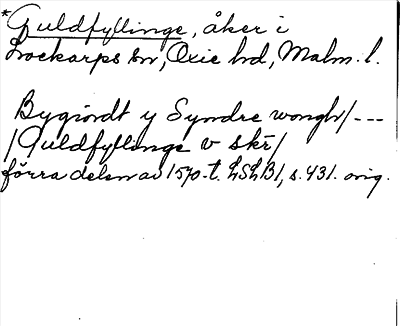 *Guldfyllinge, åker i
Lockarps sn, Oxie hd, Malm. l.
Bygiördt y Syndre wongh/---
/Guldfyllinge v skr/
förra delen av 1570-t. LSLB1, s. 431. orig.